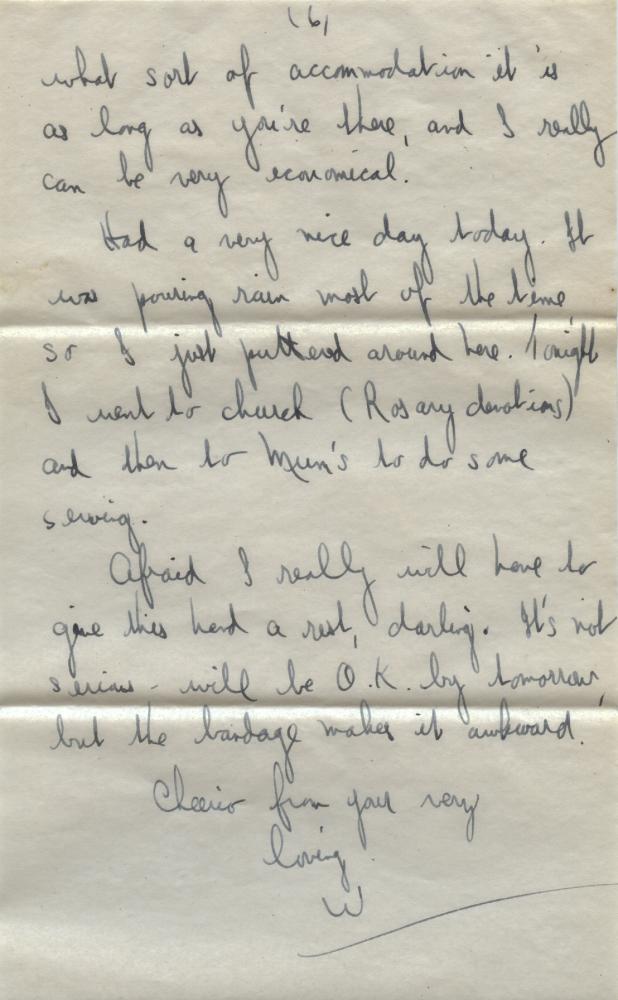 (6)
what sort of accommodation it is
as long as you're there, and I really
can be very economical.
Had a very nice day today. It
was pouring rain most of the time,
so I just puttered around here. Tonight
I went to church (Rosary devotions)
and then to Mum's to do some
sewing.
Afraid I really will have to
give this hand a rest, darling. It's not
serious - will be O.K. by tomorrow,
but the bandage makes it awkward.
Cheerio from your very
loving
W